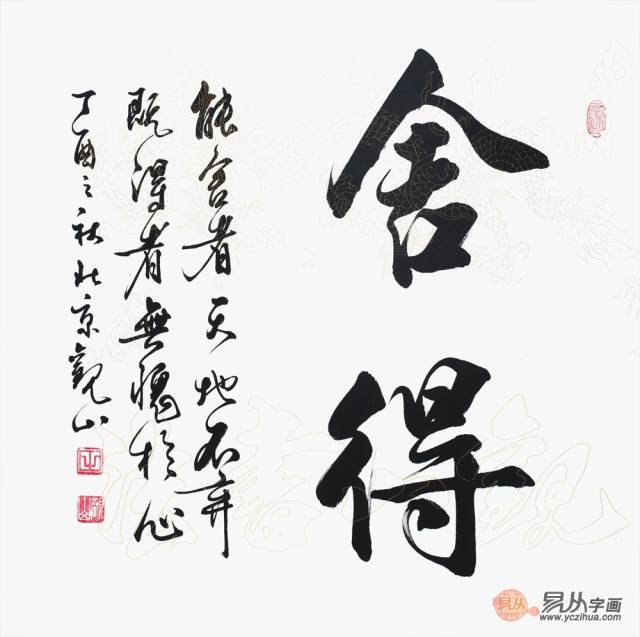 舍得
能舍者天地不弃
既得者無愧於心
丁酉之秋北京觀山
易从
易从字画
www.yczihua.com